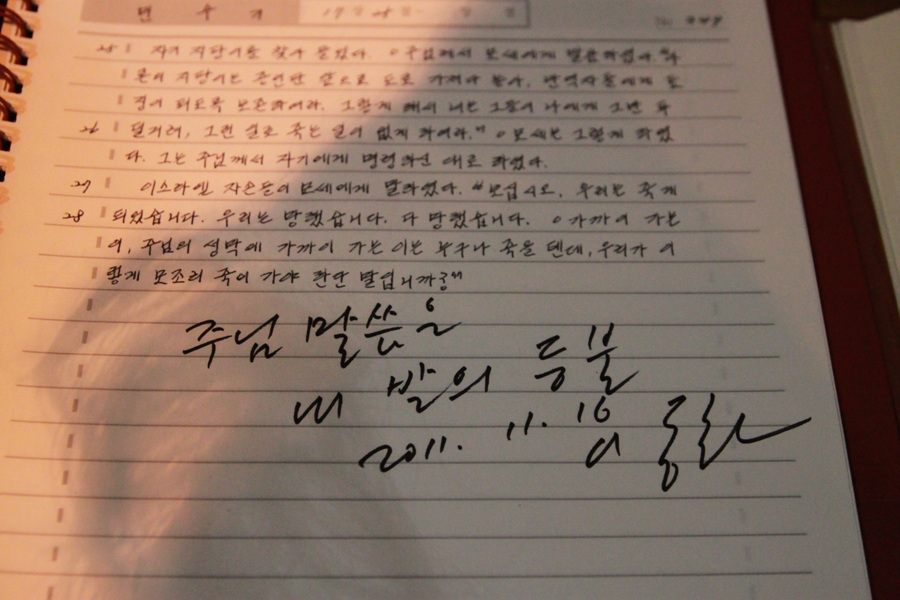 민 수 기 17장 25절
25 자기 지팡이를 찾아 들었다. ○주님께서 모세에게 말씀하셨다. "아
론의 지팡이는 증언판 앞으로 도로 가져다 놓아, 반역자들에게 표
징이 되도록 보존하여라. 그렇게 해서 너는 그들이 나에게 그만 투
26 덜거려, 그런 일로 죽는 일이 없게 하여라." ○모세는 그렇게 하였
다. 그는 주님께서 자기에게 명령하신 대로 하였다.
27 이스라엘 자손들이 모세에게 말하였다. "보십시오, 우리는 죽게
28 되었습니다. 우리는 망했습니다. 다 망했습니다. ○가까이 가는
이, 주님의 성막에 가까이 가는 이는 누구나 죽을 텐데, 우리가 이
렇게 모조리 죽어 가야 한단 말입니까?"
주님 말씀은
내 발의 등불
2011. 11. 16